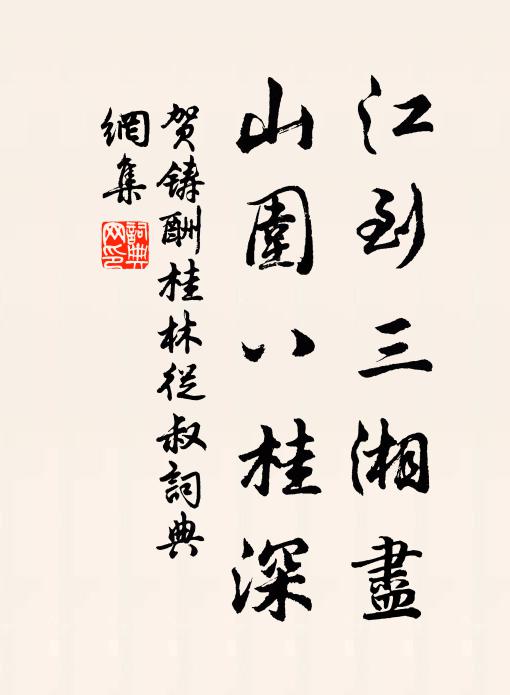 江到三湘盡
山圍八桂深
賀鑄酬桂林從叔詞典
網集
詞典網印